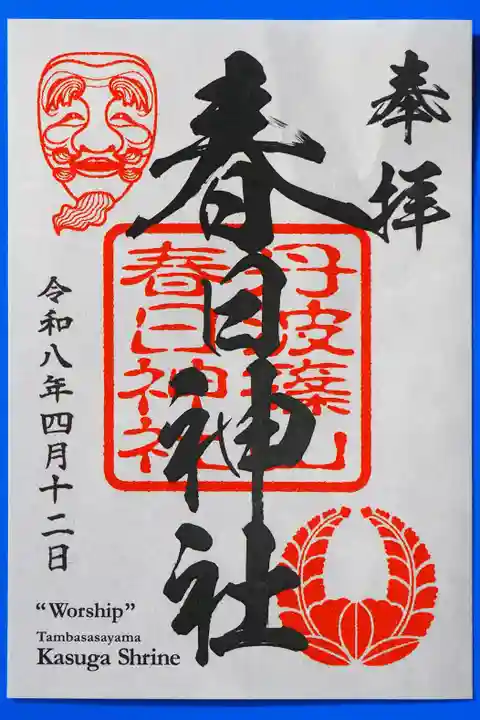 奉拝
春日神社
丹波篠山
春日神社
令和八年四月十二日
“Worship”
Tambasasayama
Kasuga Shrine